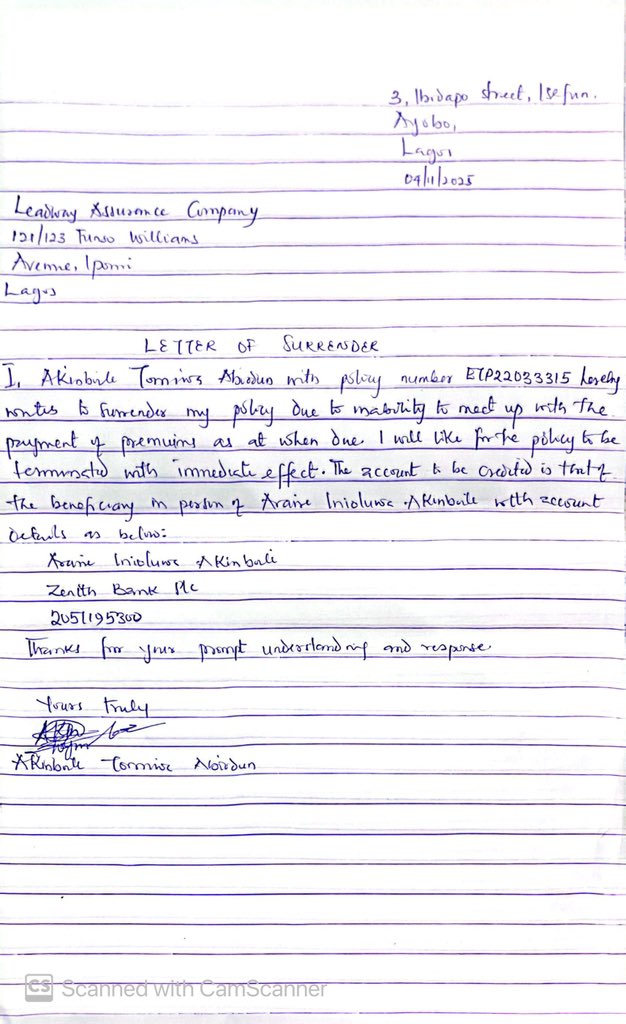 3, Ibidapo street, Isefun.
Ayobo,
Lagos
04/11/2025
Leadway Assurance Company
121/123 Funso Williams
Avenue, Iponri
Lagos
LETTER OF SURRENDER
I, Akinbule Tomiwa Abiodun with policy number ETP22033315 hereby
writes to surrender my policy due to inability to meet up with the
payment of premiums as at when due. I will like for the policy to be
terminated with immediate effect. The account to be credited is that of
the beneficiary in person of Inioluwa Akinbule with account
details as below:
Inioluwa Akinbule
Zenith Bank Plc
2051195300
Thanks for your prompt understanding and response
Yours truly
Akinbule Tomiwa Abiodun
CS Scanned with CamScanner